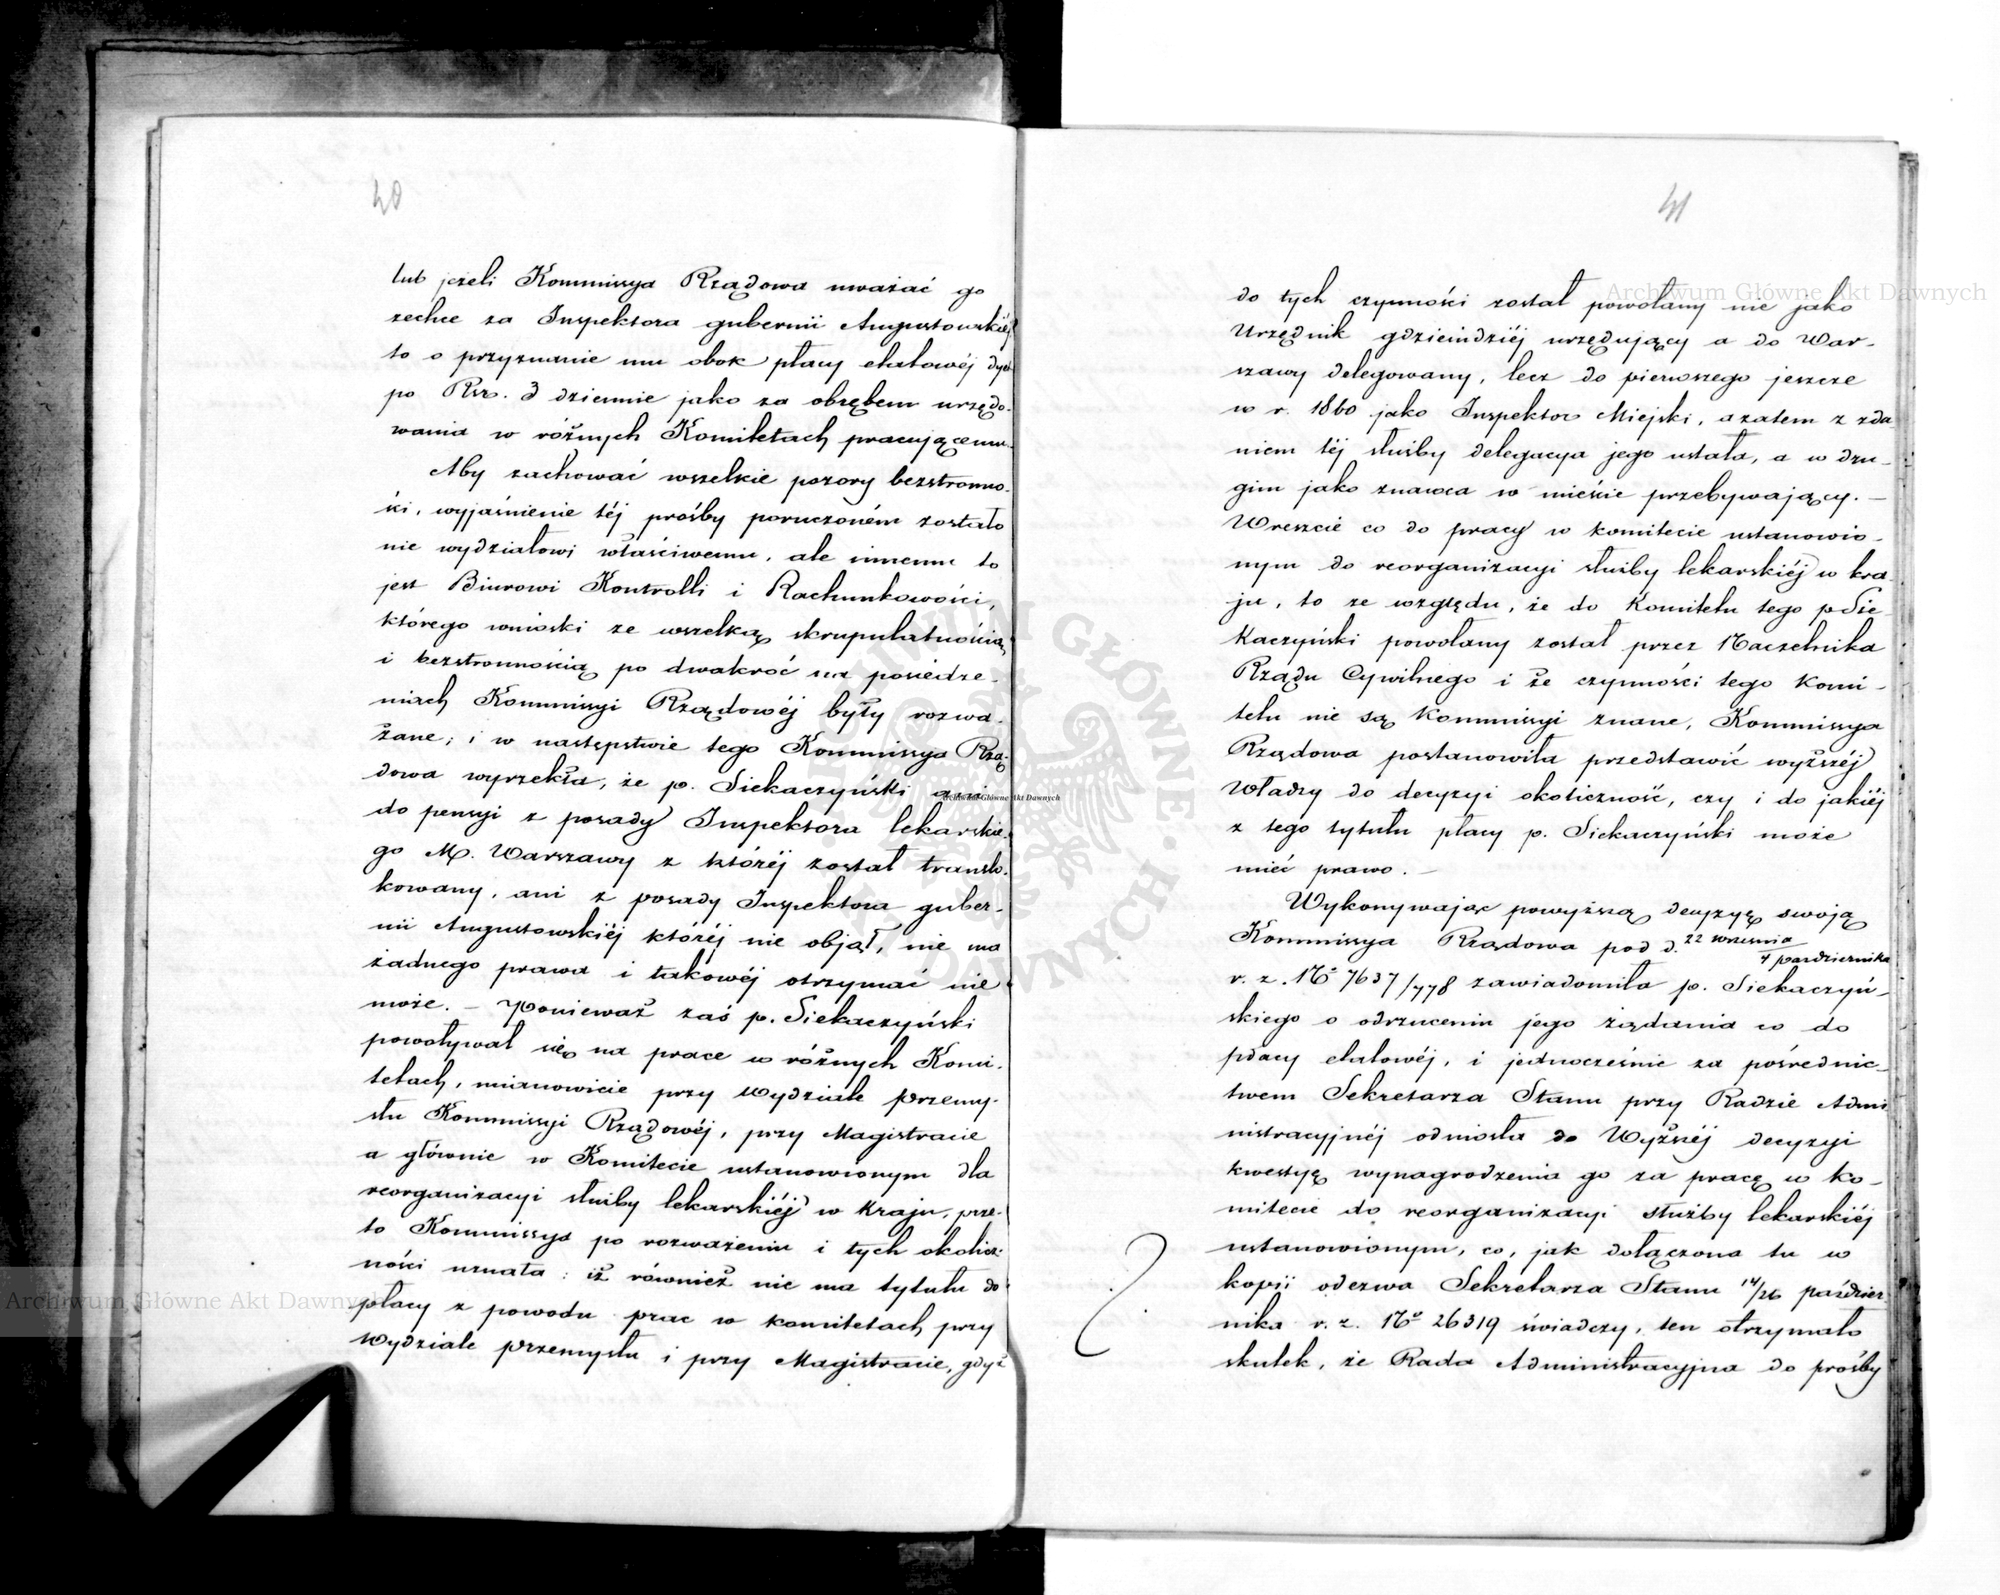 40
lub jeżeli Kommissya Rządowa uważać go
zechce za Inspektora gubernii Augustowskiéj
to o przyznanie mu obok płacy etatowéj dyet
po Rsr. 3 dziennie jako za obrębem urzędo-
wania w różnych Komitetach pracującemu.
Aby zachować wszelkie pozory bezstronno-
ści, wyjaśnienie téj prośby poruczoném zostało
nie wydziałowi właściwemu, ale innemu to
jest Biurowi Kontrolli i Rachunkowości,
którego wnioski ze wszelką skrupulatnością
i bezstronnością po dwakroć na posiedze-
niach Kommissyi Rządowéj były rozwa-
żane; i w następstwie tego Kommissya Rzą-
dowa wyrzekła, że p. Siekaczyński ani
do pensyi z posady Inspektora lekarskie-
go M. Warszawy z któréj został translo-
kowany, ani z posady Inspektora guber-
nii Augustowskiéj któréj nie objął, nie ma
żadnego prawa i takowéj otrzymać nie
może. – Ponieważ zaś p. Siekaczyński
powoływał się na prace w różnych Komi-
tetach, mianowicie przy Wydziale Przemy-
słu Kommissyi Rządowéj, przy Magistracie
a głównie w Komitecie ustanowionym dla
reorganizacyi służby lekarskiéj w Kraju, prze-
to Kommissya po rozważeniu i tych okolicz-
ności uznała: iż również nie ma tytułu do
płacy z powodu prac w komitetach przy
Wydziale Przemysłu i przy Magistracie, gdyż
41
do tych czynności został powołany nie jako
Urzędnik gdzieindziéj urzędujący a do War-
szawy delegowany, lecz do pierwszego jeszcze
w r. 1860 jako Inspektor Miejski, a zatem z zda
niem téj służby delegacya jego ustała, a w dru-
gim jako znawca w mieście przebywający. –
Wreszcie co do pracy w komitecie ustanowio-
nym do reorganizacyi służby lekarskiéj w kra-
ju, to ze względu, że do Komitetu tego p Sie
kaczyński powołany został przez Naczelnika
Rządu Cywilnego i że czynności tego Komi-
tetu nie są Kommissyi znane, Kommissya
Rządowa postanowiła przedstawić wyższéj
Władzy do decyzyi okoliczność, czy i do jakiéj
z tego tytułu płacy p. Siekaczyński może
mieć prawo. –
Wykonywając powyższą decyzyę swoją
Kommissya Rządowa pod d. 22 września
4 października
r. z. No 7637/778 zawiadomiła p. Siekaczyń-
skiego o odrzuceniu jego żądania co do
płacy etatowéj, i jednocześnie za pośrednic-
twem Sekretarza Stanu przy Radzie Admi
nistracyjnéj odniosła do Wyższéj decyzyi
kwestyę wynagrodzenia go za pracę w ko-
mitecie do reorganizacyi służby lekarskiéj
ustanowionym, co, jak dołączona tu w
kopii odezwa Sekretarza Stanu 14/26 paździer
nika r. z. No 26319 świadczy, ten otrzymało
skutek, że Rada Administracyjna do prośby
Archiwum Główne Akt Dawnych
Archiwum Główne Akt Dawnych
Archiwum Główne Akt Dawnych